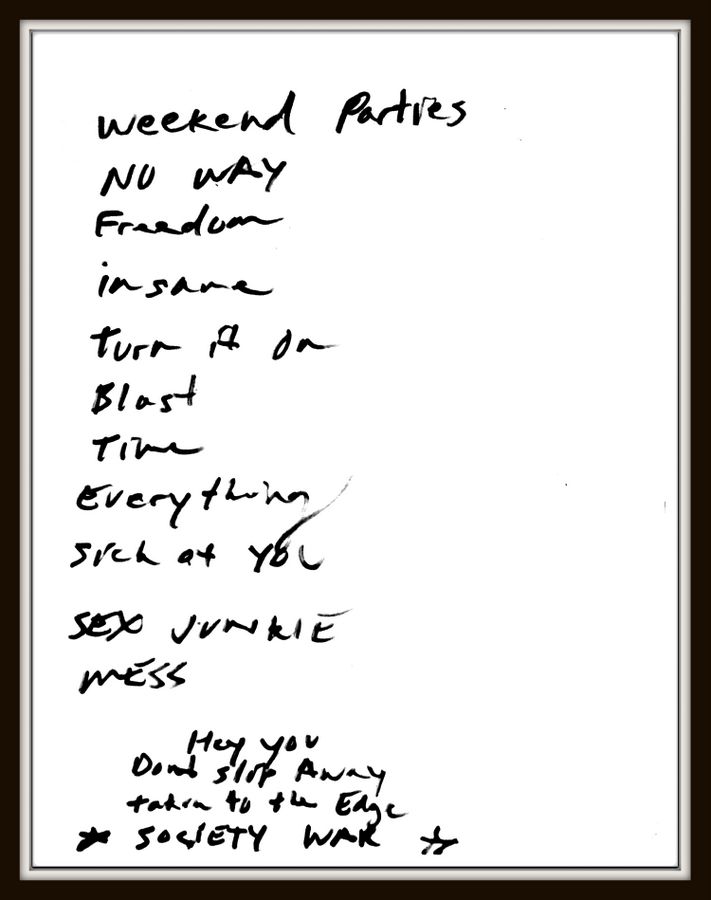 Weekend Parties
NO WAY
Freedom
insane
turn it on
Blast
Time
Everything
Sick at you
SEX JUNKIE
MESS
Hey you
Dont slip Away
taken to the Edge
* SOCIETY WAR ☆